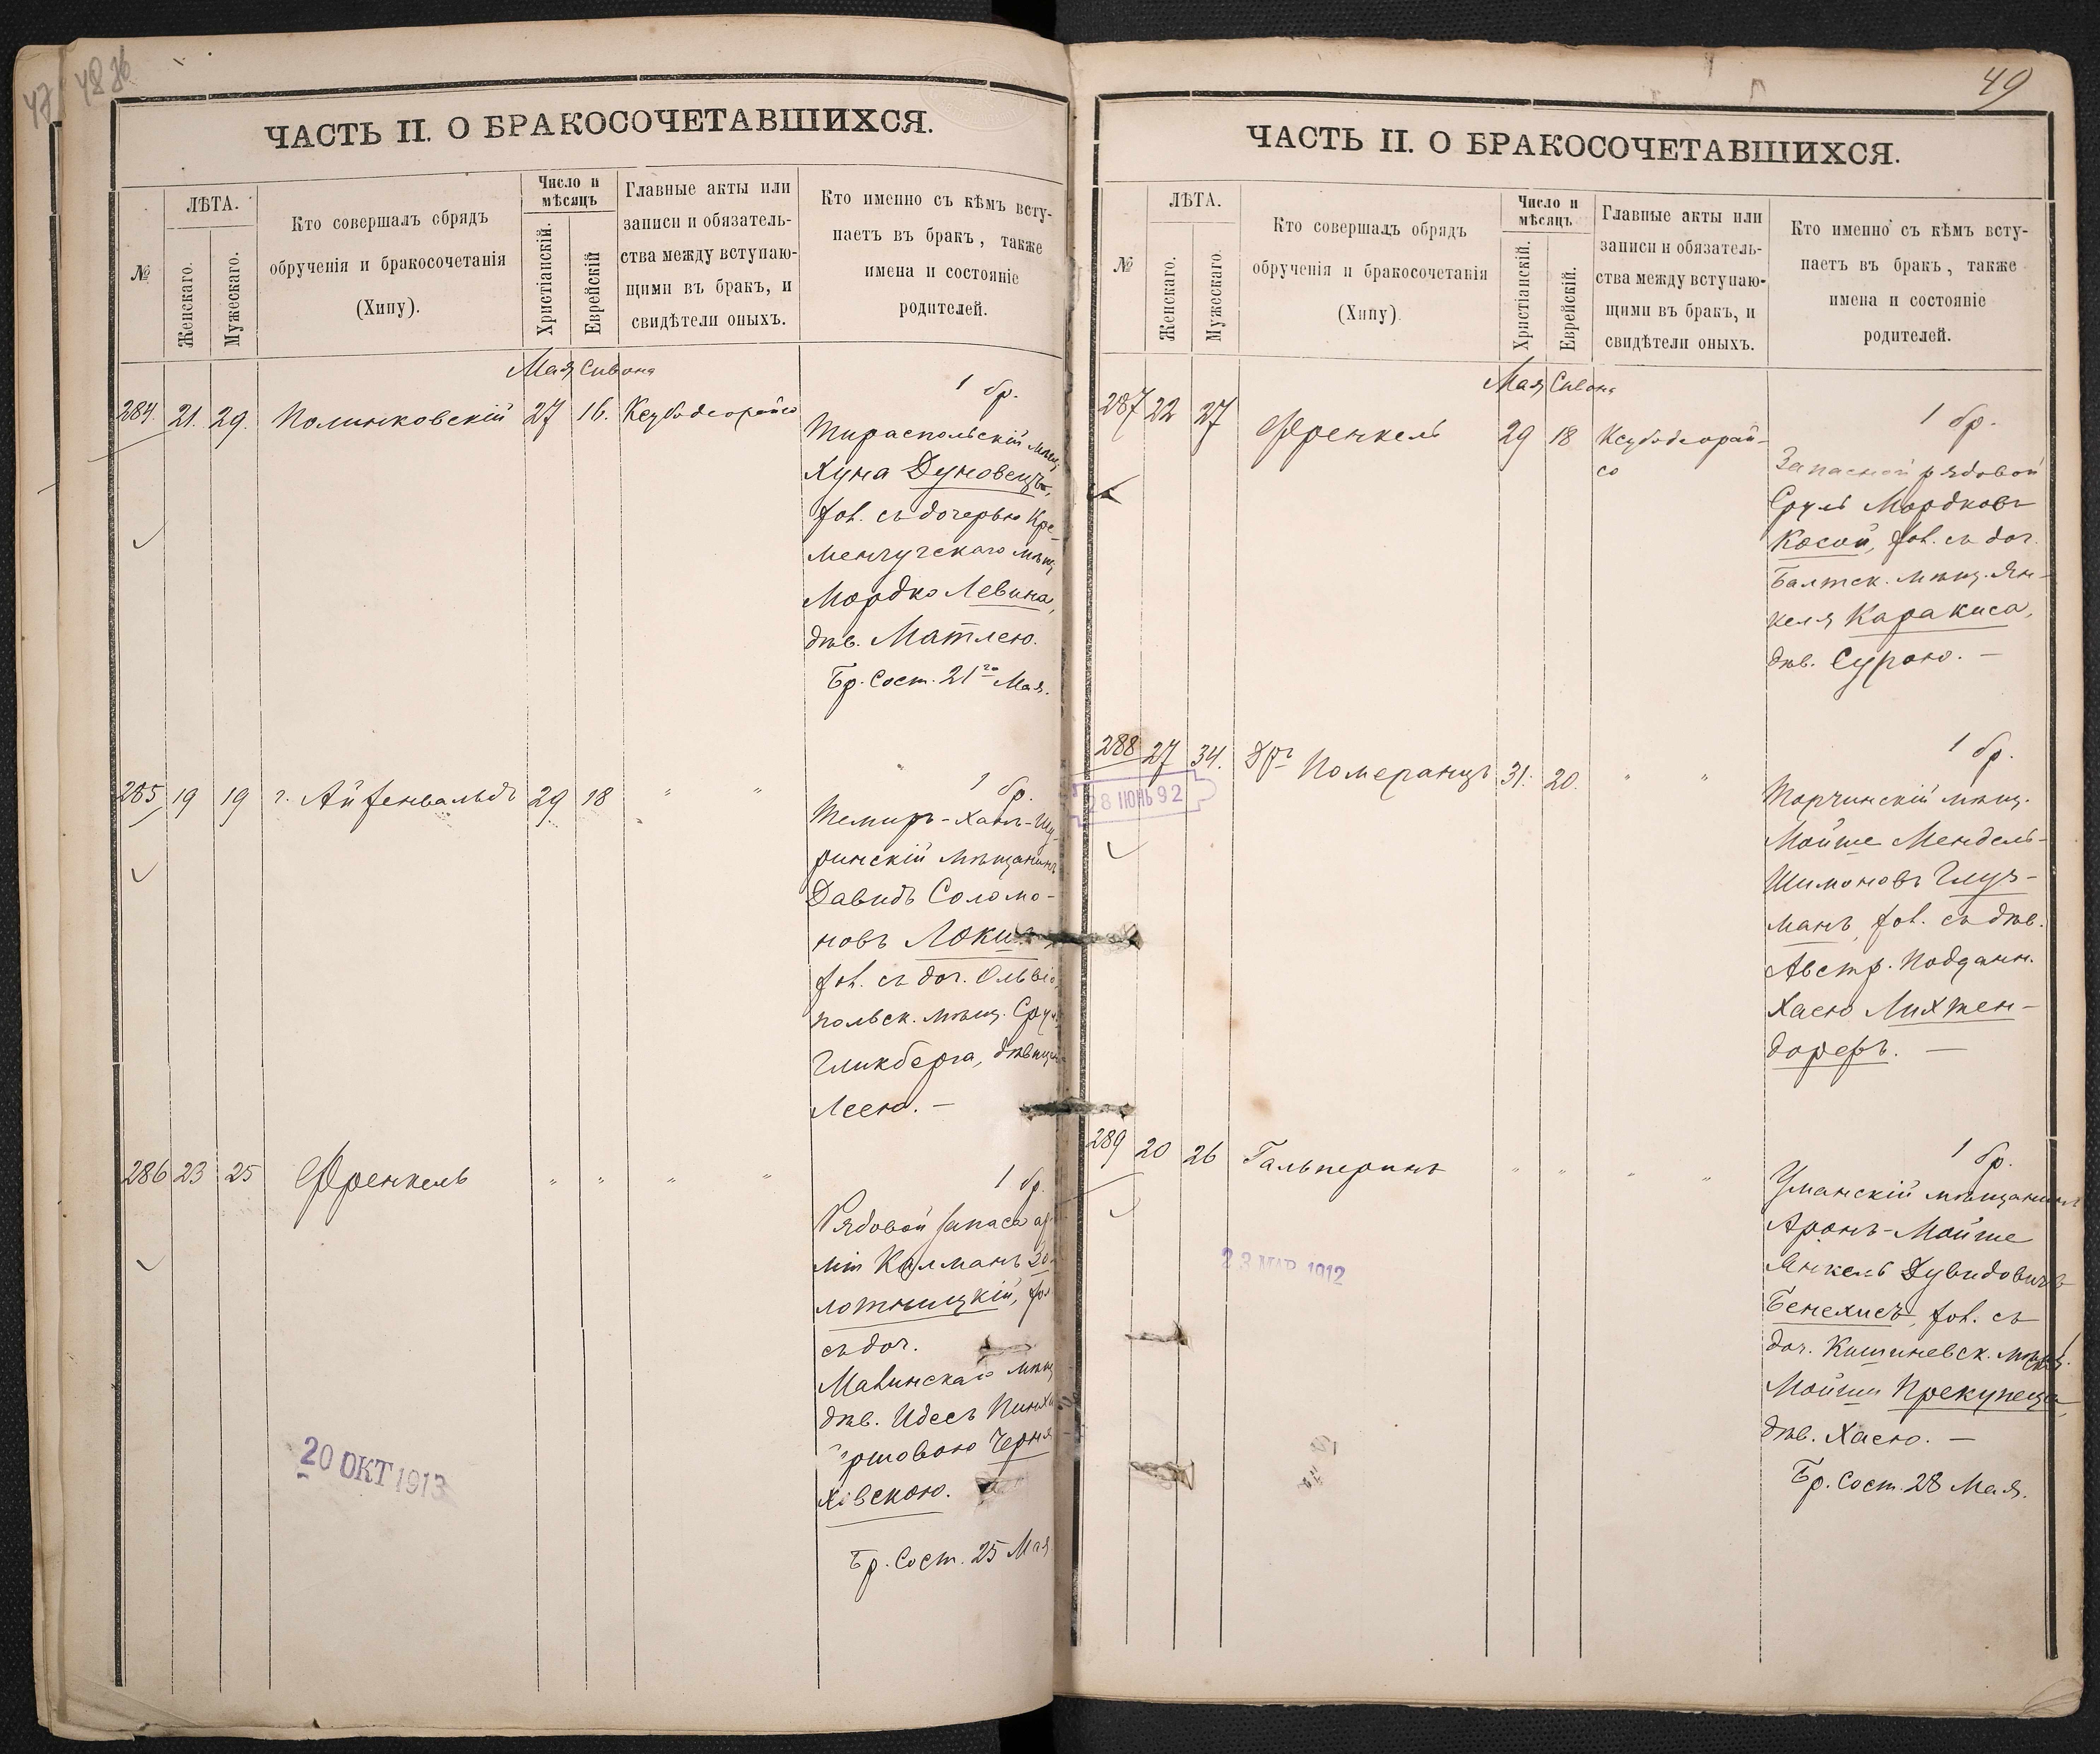 47 48 36
ЧАСТЬ II. О БРАКОСОЧЕТАВШИХСЯ.
№
ЛѢТА.
Женскаго.
Мужескаго.
Кто совершалъ обрядъ
обрученія и бракосочетанія
(Хипу).
Число и
мѣсяцъ
Христіанскій.
Еврейскій
Главные акты или
записи и обязатель-
ства между вступаю-
щими въ бракъ, и
свидѣтели оныхъ.
Кто именно съ кѣмъ всту-
паетъ въ бракъ, также
имена и состояніе
родителей.
Мая Сивона
284. 21. 29. Полинковскій 27 16. Ксубодеорайсо
1 бр.
Тираспольскій мѣщ.
Хуна Дуновецъ,
хол. съ дочерью Кре-
менчугскаго мѣщ.
Мордко Левина,
дѣв. Матлею.
Бр. Сост. 21го Мая.
285 19 19 г. Айзенвальдъ 29 18 " "
1 бр.
Темиръ-Ханъ-Шу-
ринскій мѣщанинъ
Давидъ Соломо-
новъ Локш
хол. съ доч. Ольвіо-
польск. мѣщ. Сруля
Гликберга, дѣвицею
Леею. —
286 23 25 Френкель " " " "
1 бр.
Рядовой запаса ар-
міи Калманъ Зо-
лотницкій, хол.
съ доч.
Малинскаго мѣщ.
дѣв. Идесъ Пинхе
Гершовою Черня
ховскою.
Бр. Сост. 25 Мая
20 ОКТ 1913
49
ЧАСТЬ II. О БРАКОСОЧЕТАВШИХСЯ.
№
ЛѢТА.
Женскаго.
Мужескаго.
Кто совершалъ обрядъ
обрученія и бракосочетанія
(Хипу)
Число и
мѣсяцъ
Христіанскій.
Еврейскій.
Главные акты или
записи и обязатель-
ства между вступаю-
щими въ бракъ, и
свидѣтели оныхъ.
Кто именно съ кѣмъ всту-
паетъ въ бракъ, также
имена и состояніе
родителей.
Мая Сивона
287 22 27 Френкель 29 18 Ксубодеорай-
со
1 бр.
Запасной рядовой
Сруль Мордковъ
Косой, хол. съ доч.
Балтск. мѣщ. Ян-
келя Каракиса,
дѣв. Сурою. —
288 27 34. Померанцъ 31. 20. " "
28 ІЮНЬ 92
1 бр.
Торчинскій мѣщ.
Мойше Мендель-
Шимоновъ Глуз-
манъ, хол. съ дѣв.
Австр. подданн.
Хаею Лихтен-
дорфъ. —
289 20 26 Гальперинъ " " " "
1 бр.
Уманскій мѣщанинъ
Аронъ-Мойше
Янкель Дувидовичъ
Бенехисъ, хол. съ
доч. Кишиневск. мѣщ.
Мойши Прекупеца,
дѣв. Хаею. —
Бр. Сост. 28 Мая.
23 МАР 1912